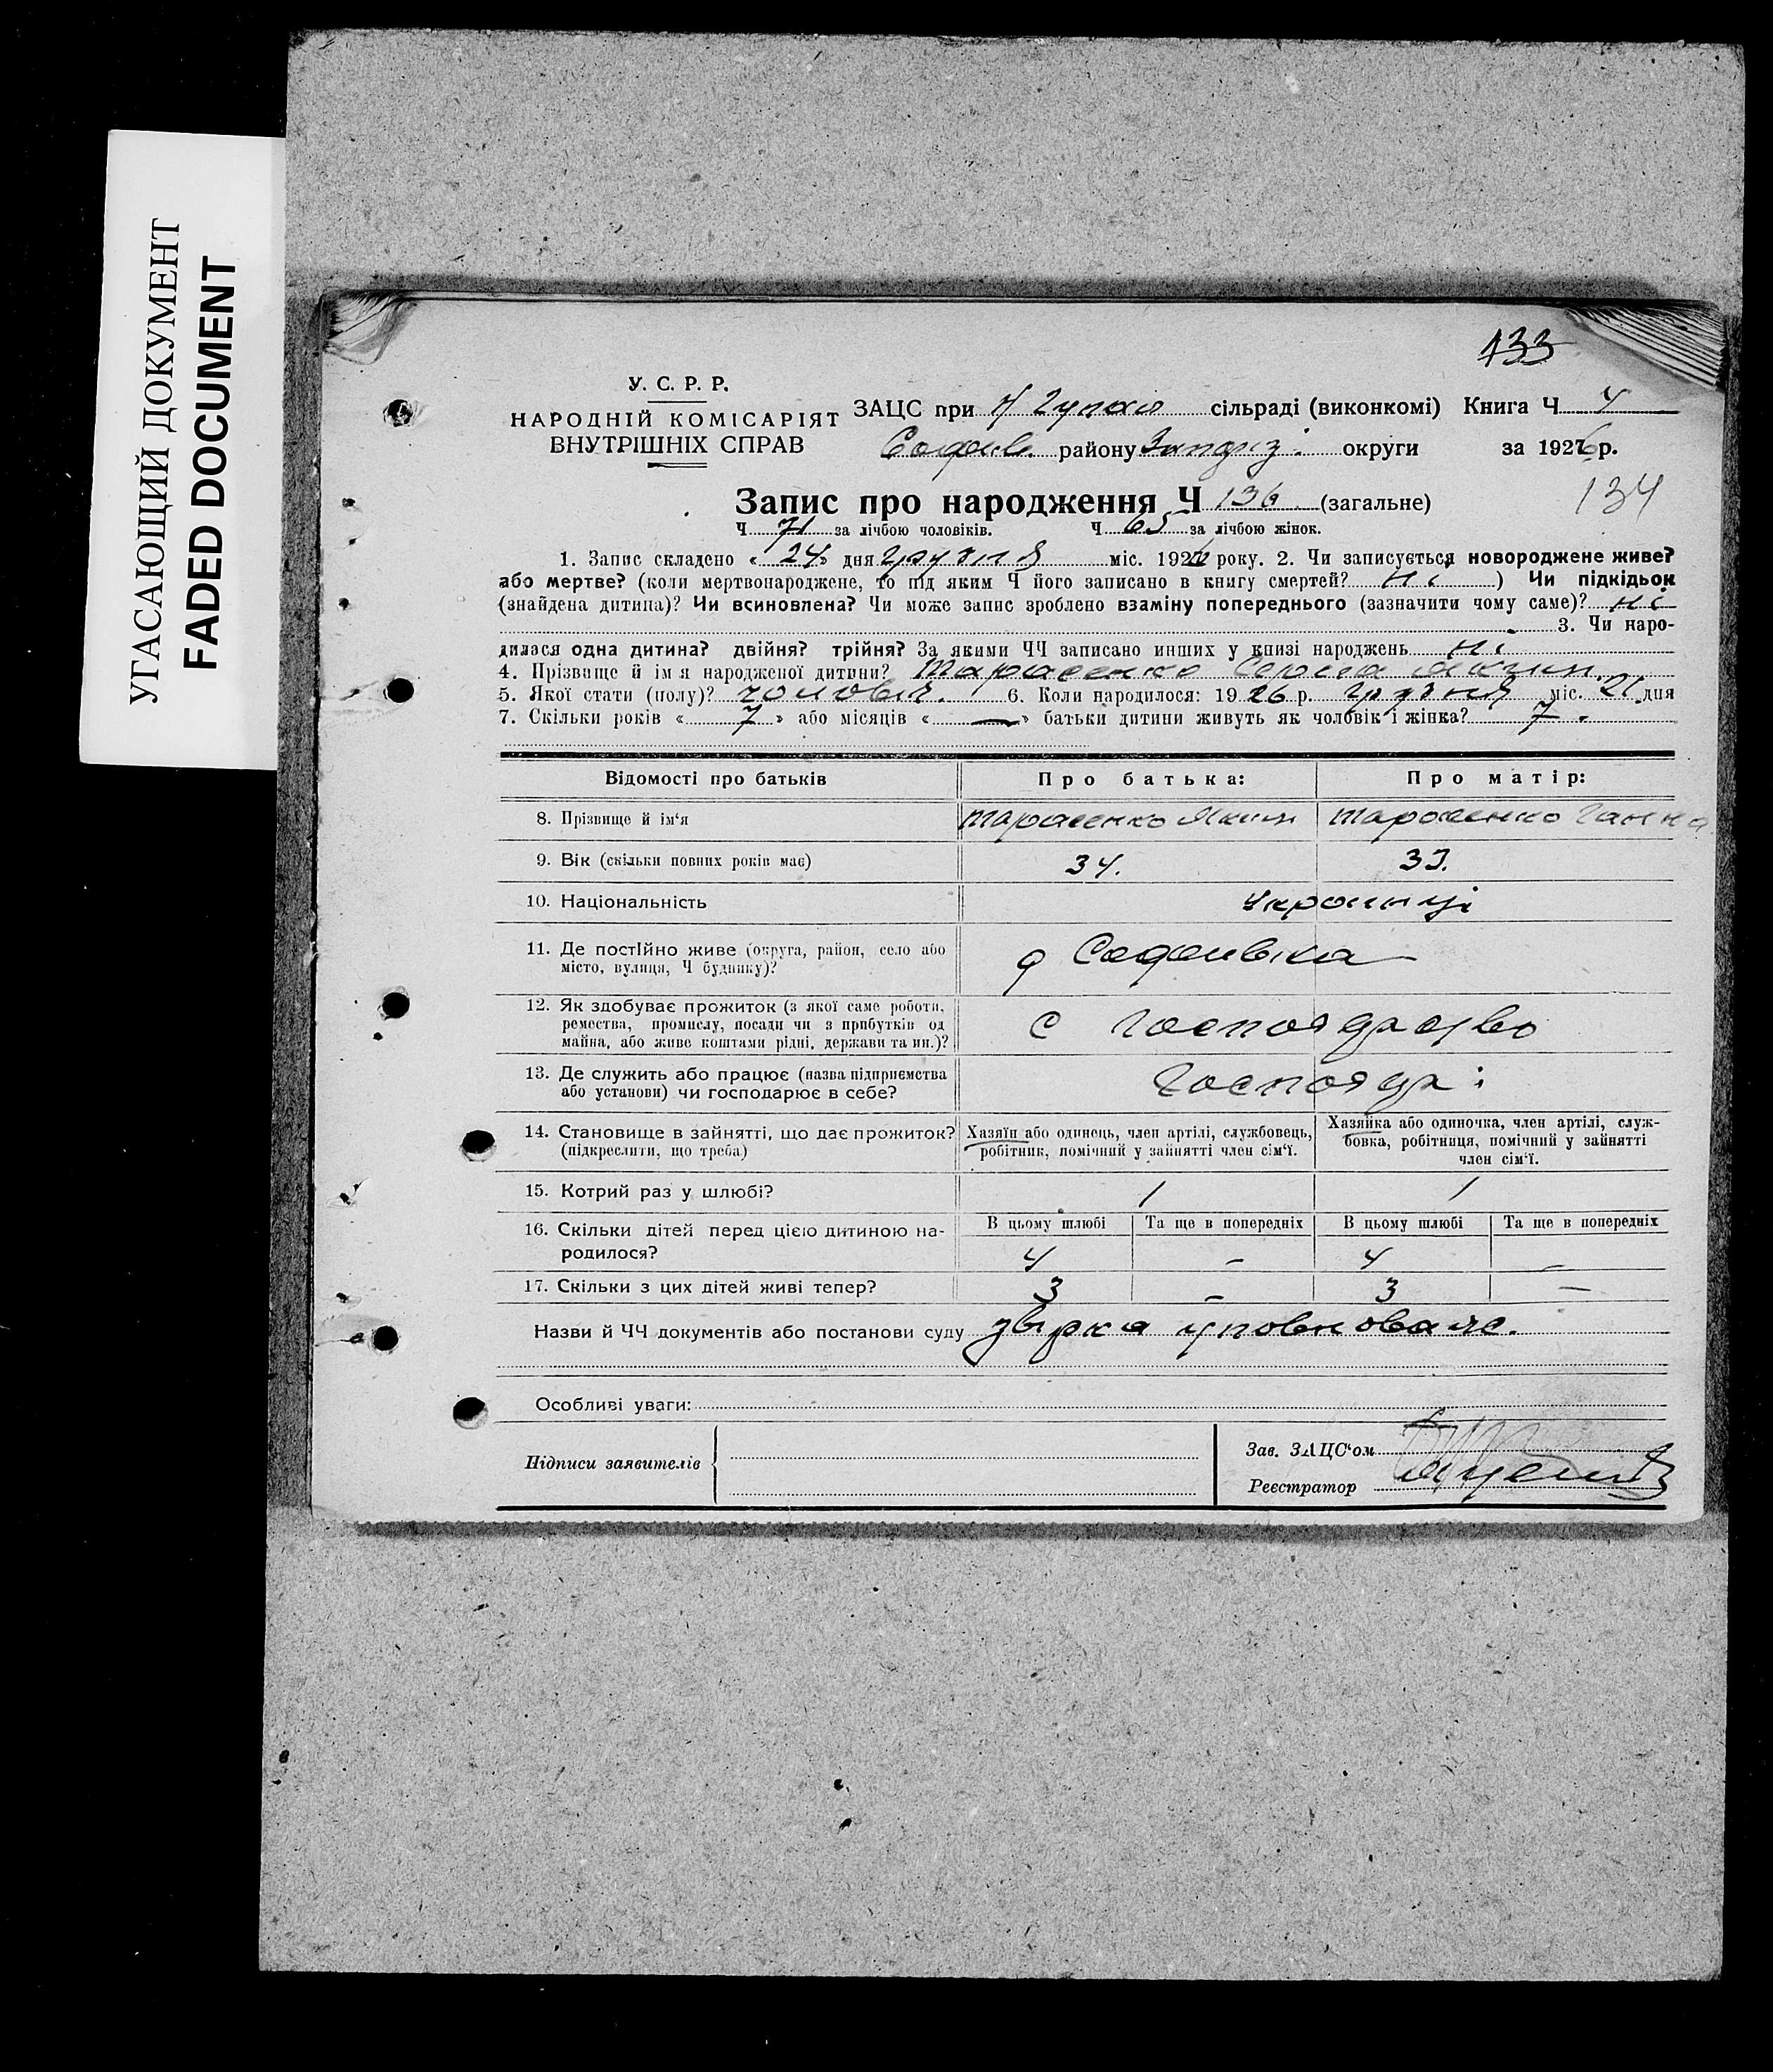 УГАСАЮЩИЙ ДОКУМЕНТ
FADED DOCUMENT
133
У. С. Р. Р.
НАРОДНІЙ КОМІСАРІЯТ
ВНУТРІШНІХ СПРАВ
ЗАЦС при сільраді (виконкомі) Книга Ч 4
Софиев. району Запоріз. округи за 1926 р.
134
Запис про народження Ч 136 (загальне)
Ч 71 за лічбою чоловіків. Ч 65 за лічбою жінок.
1. Запис складено « 24 » дня грудня міс. 1926 року. 2. Чи записується новороджене живе?
або мертве? (коли мертвонароджене, то під яким Ч його записано в книгу смертей? Ні ) Чи підкідьок
(знайдена дитина)? Чи всиновлена? Чи може запис зроблено взаміну попереднього (зазначити чому саме)? Ні
3. Чи наро-
дилася одна дитина? двійня? трійня? За якими ЧЧ записано инших у книзі народжень Ні
4. Прізвище й ім я народженої дитини? Тарасенко Яким.
5. Якої стати (полу)? чоловіч. 6. Коли народилося: 1926 р. грудня міс. 21 дня
7. Скільки років « 7 » або місяців « — » батьки дитини живуть як чоловік і жінка? 7.
Відомості про батьків Про батька: Про матір:
8. Прізвище й ім'я Тарасенко Яким Тарасенко Ганна
9. Вік (скільки повних років має) 34. 33.
10. Національність Українці
11. Де постійно живе (округа, район, село або
місто, вулиця, Ч будинку)? Софиевка
12. Як здобуває прожиток (з якої саме роботи,
ремества, промислу, посади чи з прибутків од
майна, або живе коштами рідні, держави та ин.)? С господарство
13. Де служить або працює (назва підприємства
або установи) чи господарює в себе? Господар:
14. Становище в зайнятті, що дає прожиток?
(підкреслити, що треба)
Хазяїн або одинець, член артілі, службовець,
робітник, помічний у зайнятті член сім'ї.
Хазяйка або одиночка, член артілі, служ-
бовка, робітниця, помічний у зайнятті
член сім'ї.
15. Котрий раз у шлюбі? 1 1
16. Скільки дітей перед цією дитиною на-
родилося?
В цьому шлюбі Та ще в попередніх В цьому шлюбі Та ще в попередніх
4 – 4 –
17. Скільки з цих дітей живі тепер? 3 – 3 –
Назви й ЧЧ документів або постанови суду
Особливі уваги:
Підписи заявителів
Зав. ЗАЦС'ом
Реєстратор